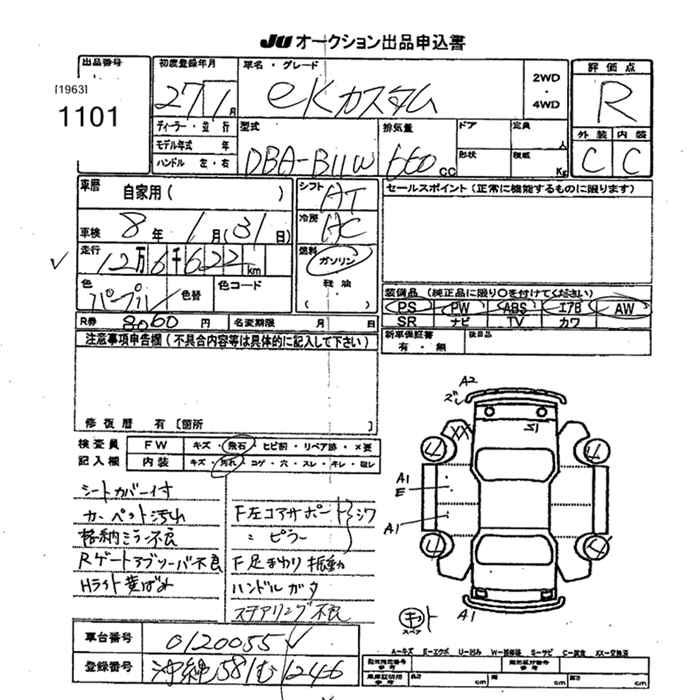 JU オークション出品申込書
出品番号
[1963]
1101
初度登録年月
27 1月
車名・グレード
eKカスタム
2WD
・
4WD
評価点
R
外装 内装
C C
ディーラー・並行
モデル年式 年
ハンドル 左・右
型式
DBA-B11W
排気量
660 CC
ドア
定員 人
形状
積載 Kg
車歴
自家用( )
車検 8年 1月(31日)
走行 12万6千622km
色 パープル 色替
色コード
シフト AT
冷房 AC
燃料
ガソリン
軽油
( )
R券 8060円
名変期限 月 日
セールスポイント(正常に機能するものに限ります)
装備品 (純正品に限り○を付けてください)
PS PW ABS エアB AW
SR ナビ TV カワ
新車保証書
有・無
後日品
注意事項申告欄(不具合内容等は具体的に記入して下さい)
修復歴 有〔箇所 〕
検査員
記入欄
FW キズ・飛石・ヒビ割・リペア跡・×要
内装 キズ・汚れ・コゲ・穴・スレ・キレ・取レ
シートカバー付
カーペット汚れ
格納ミラー不良
Rゲートアブソーバ不良
Hライト黄ばみ
F左コアサポート シワ
〃 ピラー
F足まわり振動
ハンドルガタ
ステアリング不良
A2
ズレ
XX
S1
U
U
A1
E
A1
U
U
A1
キット
スペア
車台番号 0120055
登録番号 沖縄 581 む 1246
A―キズ E―エクボ U―凹み W―補修箇 S―サビ C―腐食 XX―交換済
cm cm cm